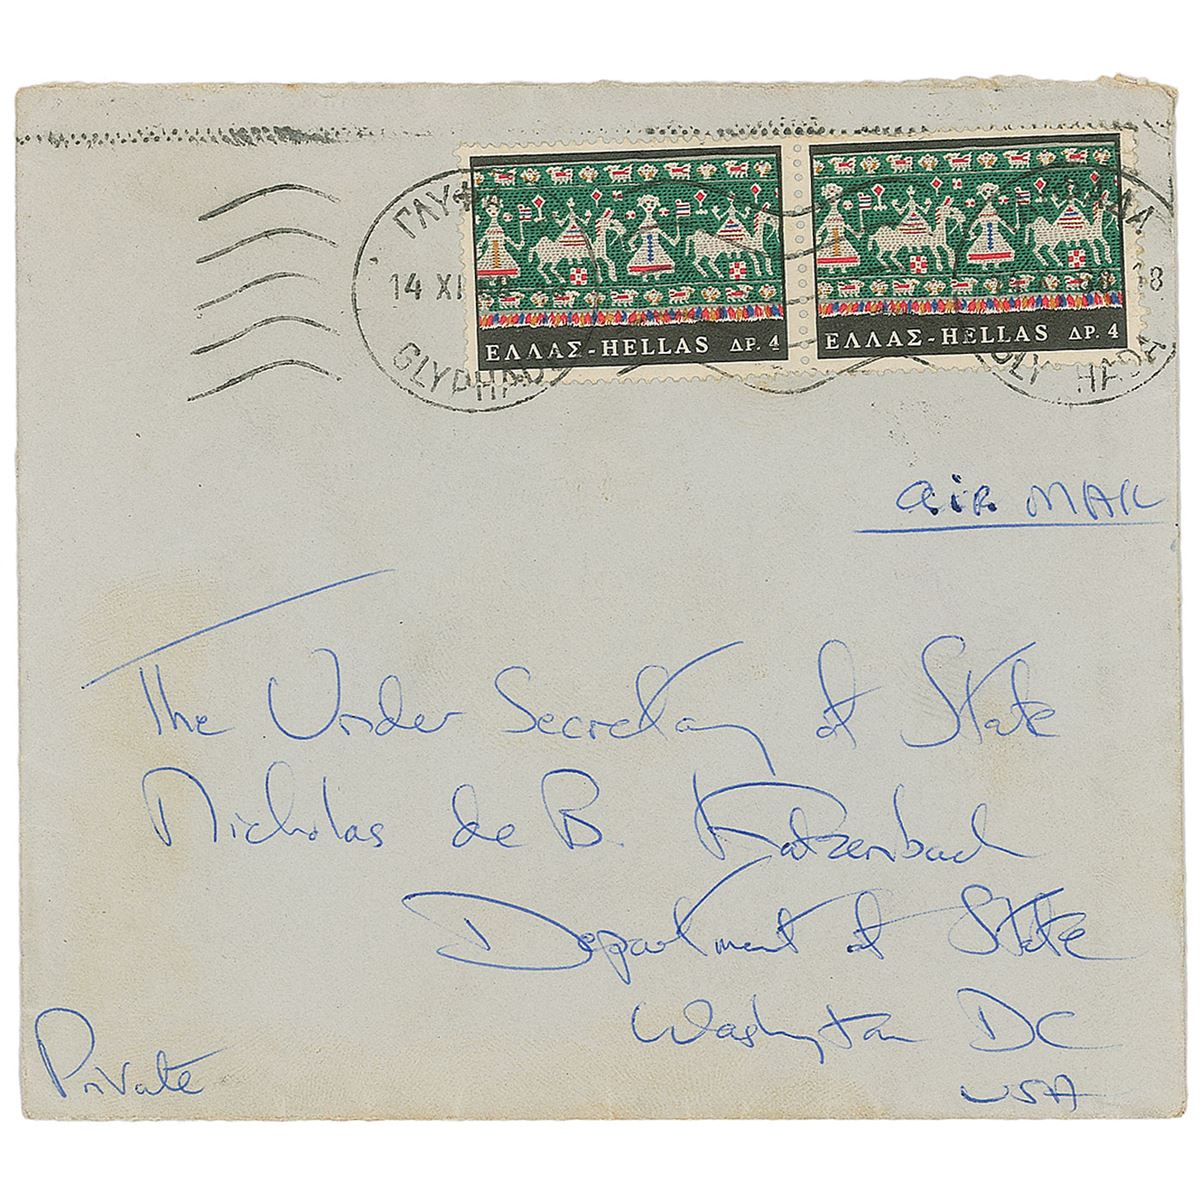 ΓΛΥΦ
14 XI
GLYPHAD
ΕΛΛΑΣ-HELLAS ΔΡ. 4
ΕΛΛΑΣ-HELLAS ΔΡ. 4
ΔΑ
18
GLYPHADA
AiR MAIL
The Under Secretary of State
Nicholas de B. Katzenbach
Department of State
Washington DC
USA
Private